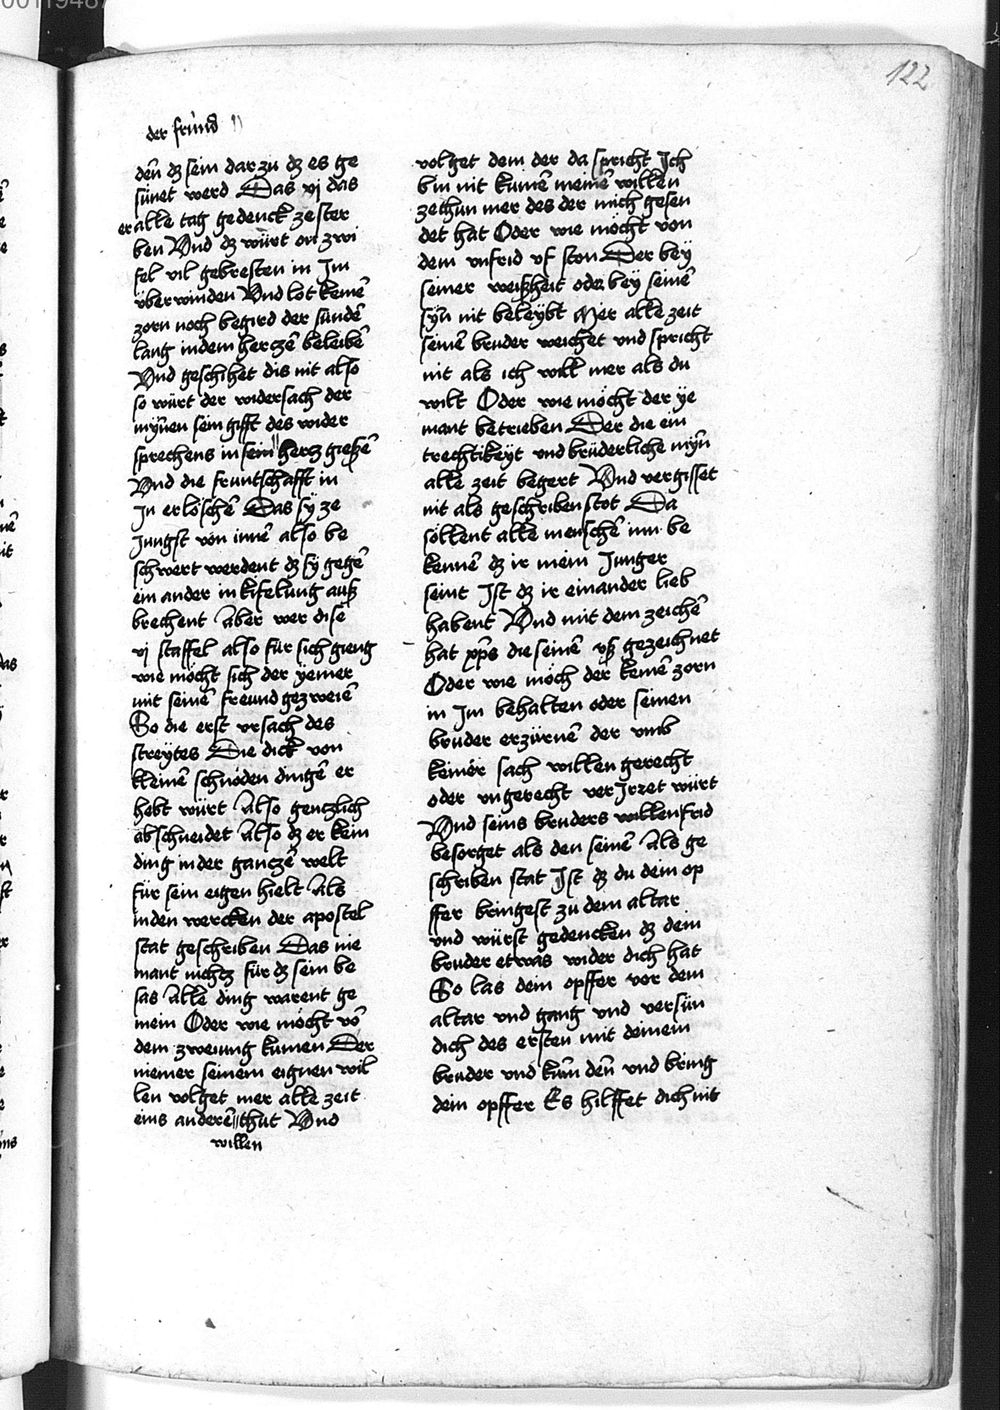 122
der frùnd
deñ dz sein dar zu dz es ge
sünet werd Das vj das
er alle tag gedenck ze ster
ben Vnd dz würt on zwi
fel vil gebresten in Im
überwinden Vnd lot kemē
zorn noch begird der sündē
lang in dem herczē beleibē
Vnd geschihet dis nit also
so würt der widersach der
mynen sein gifft des wider
sprechens in sein hercz gieszē
Vnd die fruntschafft in
In erlöschē Das sy ze
Jungst von innē also be
schwert werdent dz sy gegē
ein ander in kifelung ausz
brechent Aber wer dise
vj staffel also für sich gieng
wie möcht sich der yemer
mit seinē freund gezweiē
So die erst vrsach des
streytes Die dick von
kleinē schnöden dingē er
hebt würt Also genczlich
abschneidet Also dz er kein
ding in der ganczē welt
für sein eigen hielt Als
in den wercken der apostel
stat geschriben Das nie
mant nichtz für dz sein be
sas Alle ding warent ge
mein Oder wie möcht vō
dem zweiung kumen Der
niemer seinem eignen wil
len volget mer alle zeit
eins anderē thut Vnd
willen
volget dem der da spricht Ich
bin nit kumē meinē willen
ze thun mer des der mich gesen
det hat Oder wie möcht von
dem vnfrid vf ston Der bey
seiner weiszheit oder bey seinē
syn nit beleybt Mer alle zeit
seinē bruder weichet vnd spricht
nit als ich will mer als du
wilt Oder wie möcht der ye
mant betrieben Der die ein
trechtikeyt vnd brüderliche myn
alle zeit begert Vnd vergisset
nit als geschriben stot Da
söllent alle menschē inn be
kennē dz ir mein Junger
seint Ist dz ir einander lieb
habent Vnd mit dem zeichē
hat xp̄s die seinē vsz gezeichnet
Oder wie möch der keinē zorn
in Im behalten oder seinen
bruder erzürnē der vmb
keiner sach willen gerecht
oder vngerecht verJrzet würt
Vnd seins bruders willen frid
besorget als den seinē Als ge
schriben stat Ist dz du dein op
ffer bringest zu dem altar
vnd würst gedencken dz dein
bruder etwas wider dich hat
So las dem opffer vor dem
altar vnd gang vnd versün
dich des ersten mit deinem
bruder vnd kum deñ vnd bring
dein opffer Es hilffet dich nit